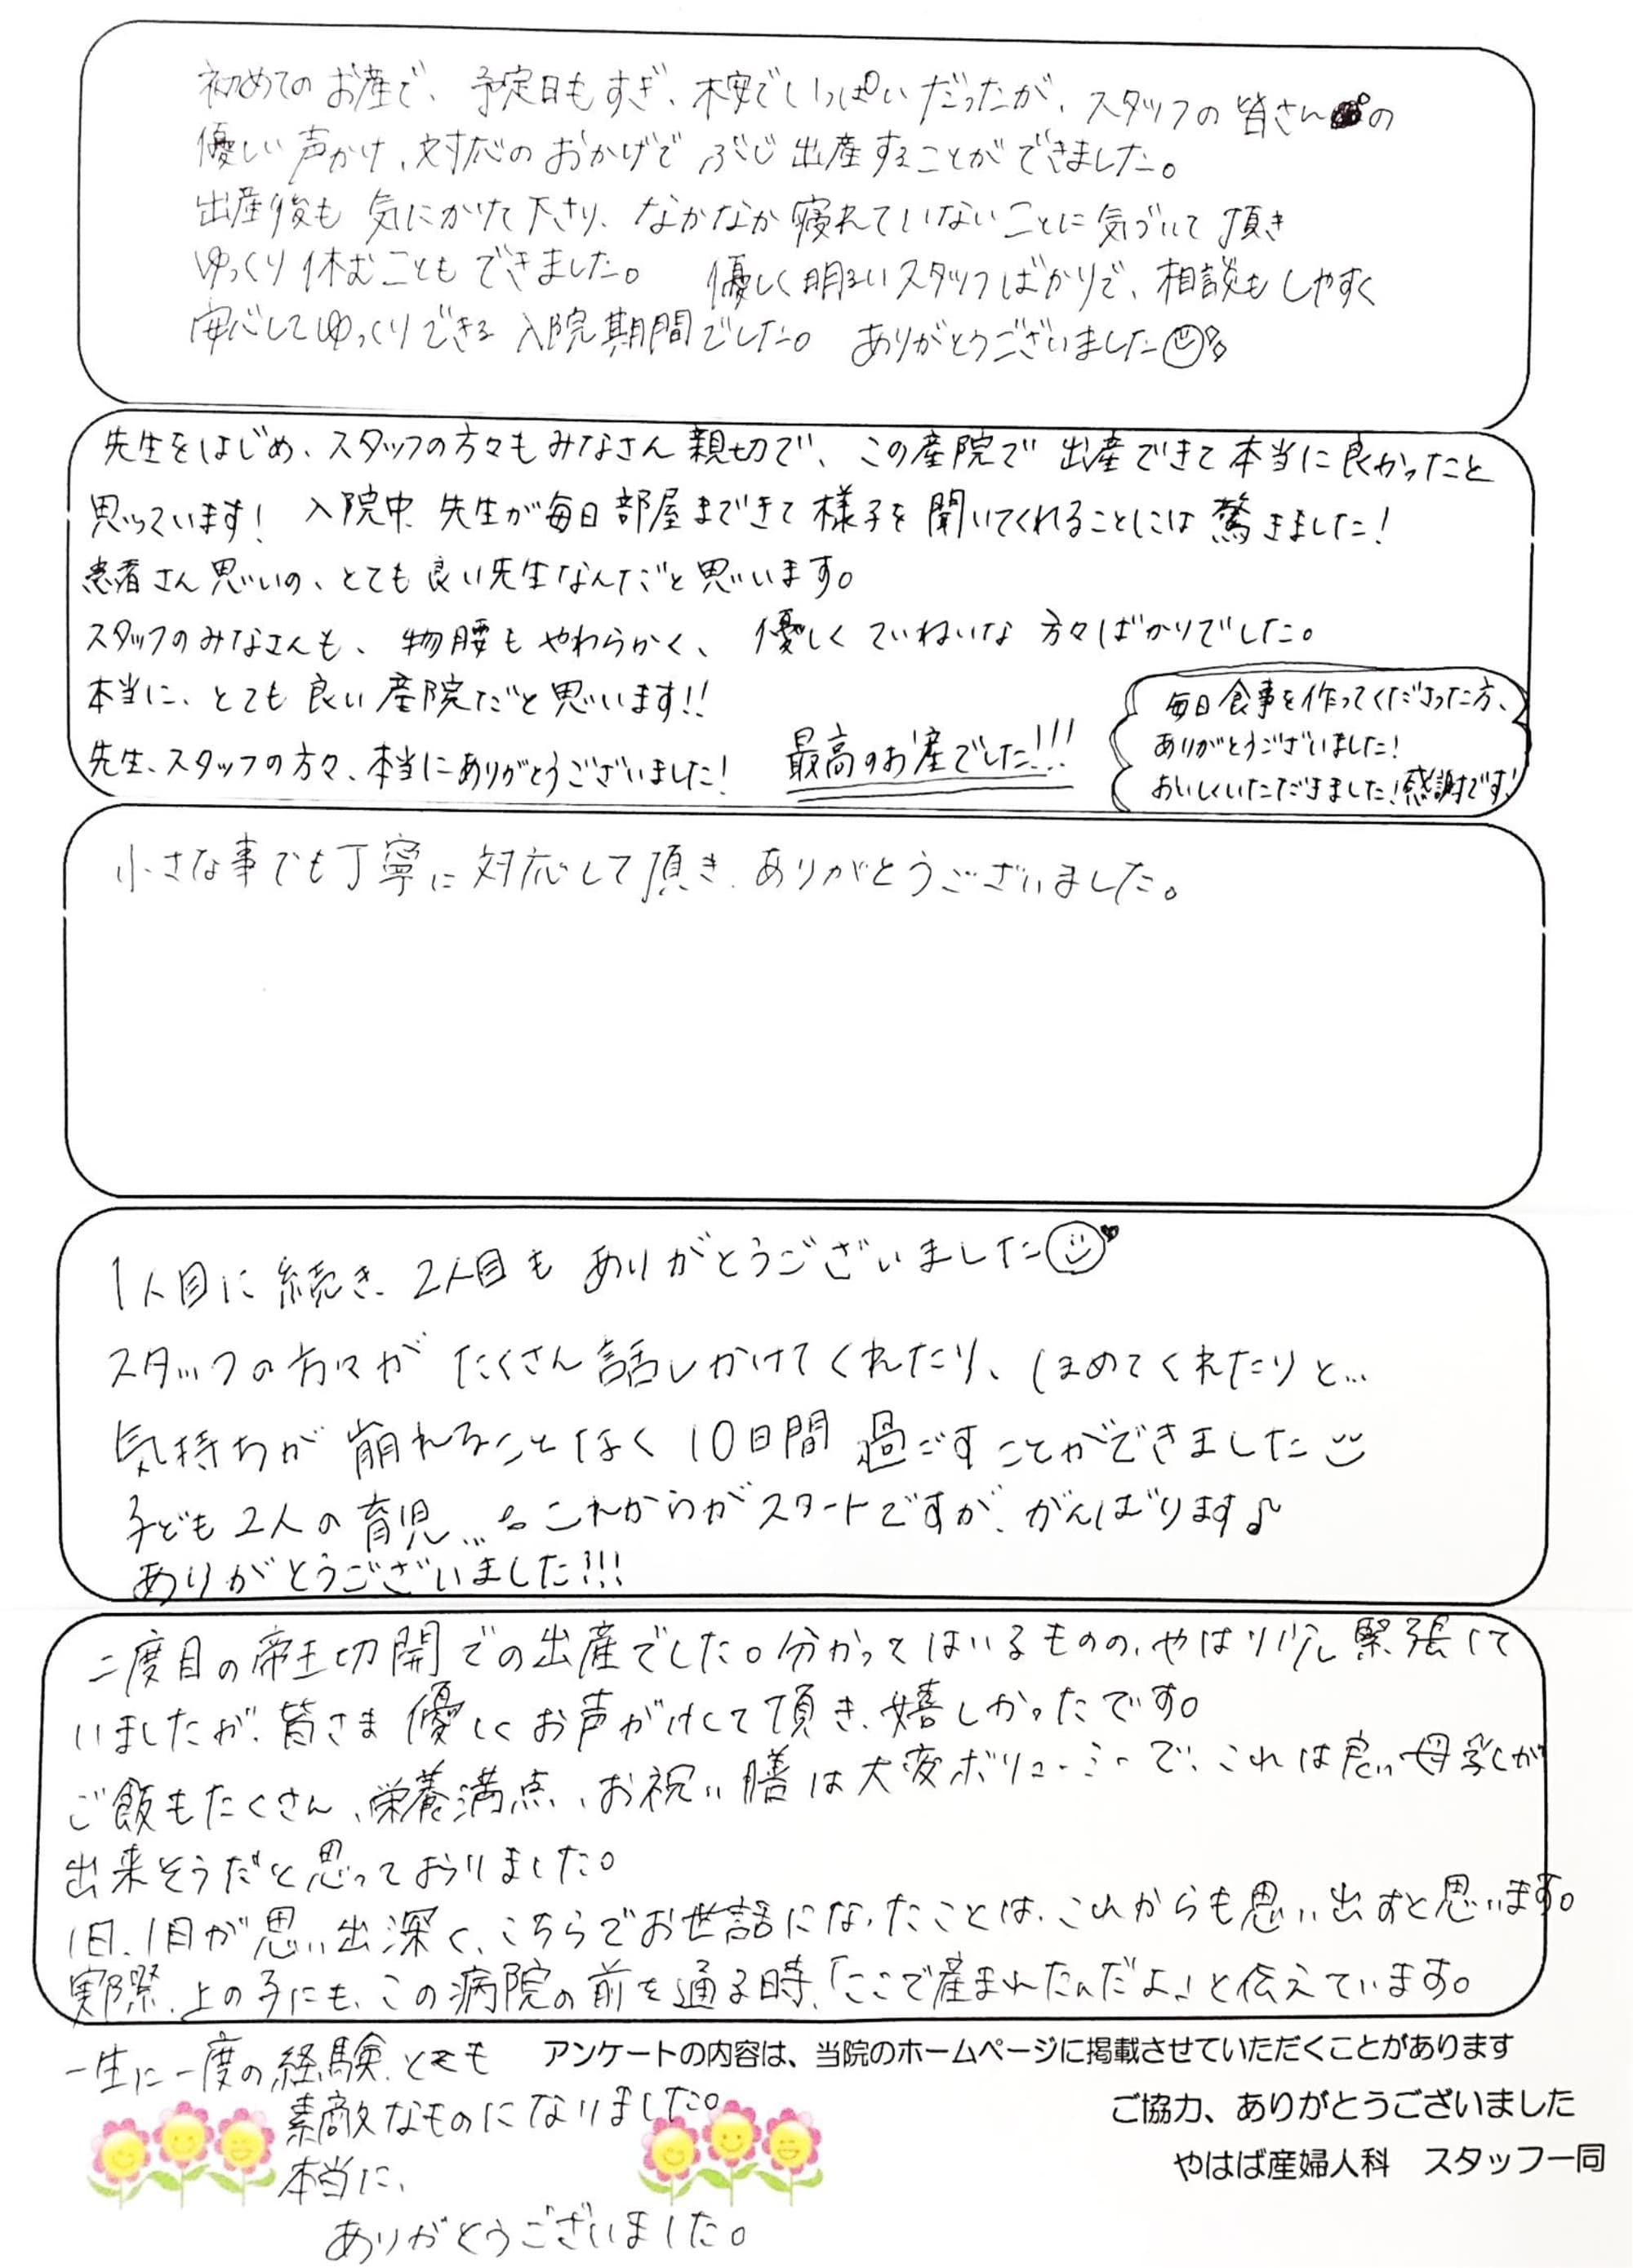 初めてのお産で、予定日もすぎ、不安でいっぱいだったが、スタッフの皆さんの
優しい声かけ、対応のおかげでぶじ出産することができました。
出産後も気にかけて下さり、なかなか寝れていないことに気づいて頂き
ゆっくり休むこともできました。 優しく明るいスタッフばかりで、相談もしやすく
安心してゆっくりできる入院期間でした。 ありがとうございました
先生をはじめ、スタッフの方々もみなさん親切で、この産院で出産できて本当に良かったと
思っています! 入院中、先生が毎日部屋まできて様子を聞いてくれることには驚きました!
患者さん思いの、とても良い先生なんだと思います。
スタッフのみなさんも、物腰もやわらかく、優しくていねいな方々ばかりでした。
本当に、とても良い産院だと思います!!
先生、スタッフの方々、本当にありがとうございました! 最高のお産でした!!!
毎日食事を作ってくださった方、
ありがとうございました!
おいしくいただきました!感謝です!
小さな事でも丁寧に対応して頂き、ありがとうございました。
1人目に続き、2人目もありがとうございました
スタッフの方々がたくさん話しかけてくれたり、ほめてくれたりと…
気持ちが崩れることなく10日間過ごすことができました
子ども2人の育児…。これからがスタートですが、がんばります♪
ありがとうございました!!!
二度目の帝王切開での出産でした。分かってはいるものの、やはり少し緊張して
いましたが、皆さま優しくお声がけして頂き、嬉しかったです。
ご飯もたくさん、栄養満点、お祝い膳は大変ボリューミーで、これは良い母乳が
出来そうだと思っておりました。
1日、1日が思い出深く、こちらでお世話になったことは、これからも思い出すと思います。
実際、上の子にも、この病院の前を通る時、「ここで産まれたんだよ」と伝えています。
一生に一度の経験、とても
素敵なものになりました。
本当に、
ありがとうございました。
アンケートの内容は、当院のホームページに掲載させていただくことがあります
ご協力、ありがとうございました
やはば産婦人科 スタッフ一同